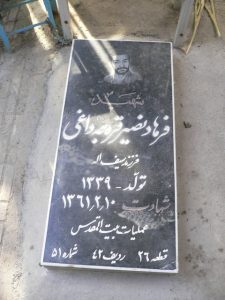 شهید
فرهاد نصیر قره چه داغی
فرزند سیف اله
تولد - ۱۳۳۹
شهادت ۱۳۶۱،۲،۱۰
عملیات بیت المقدس
قطعه ۲۶ ردیف ۴۲ شماره ۵۱